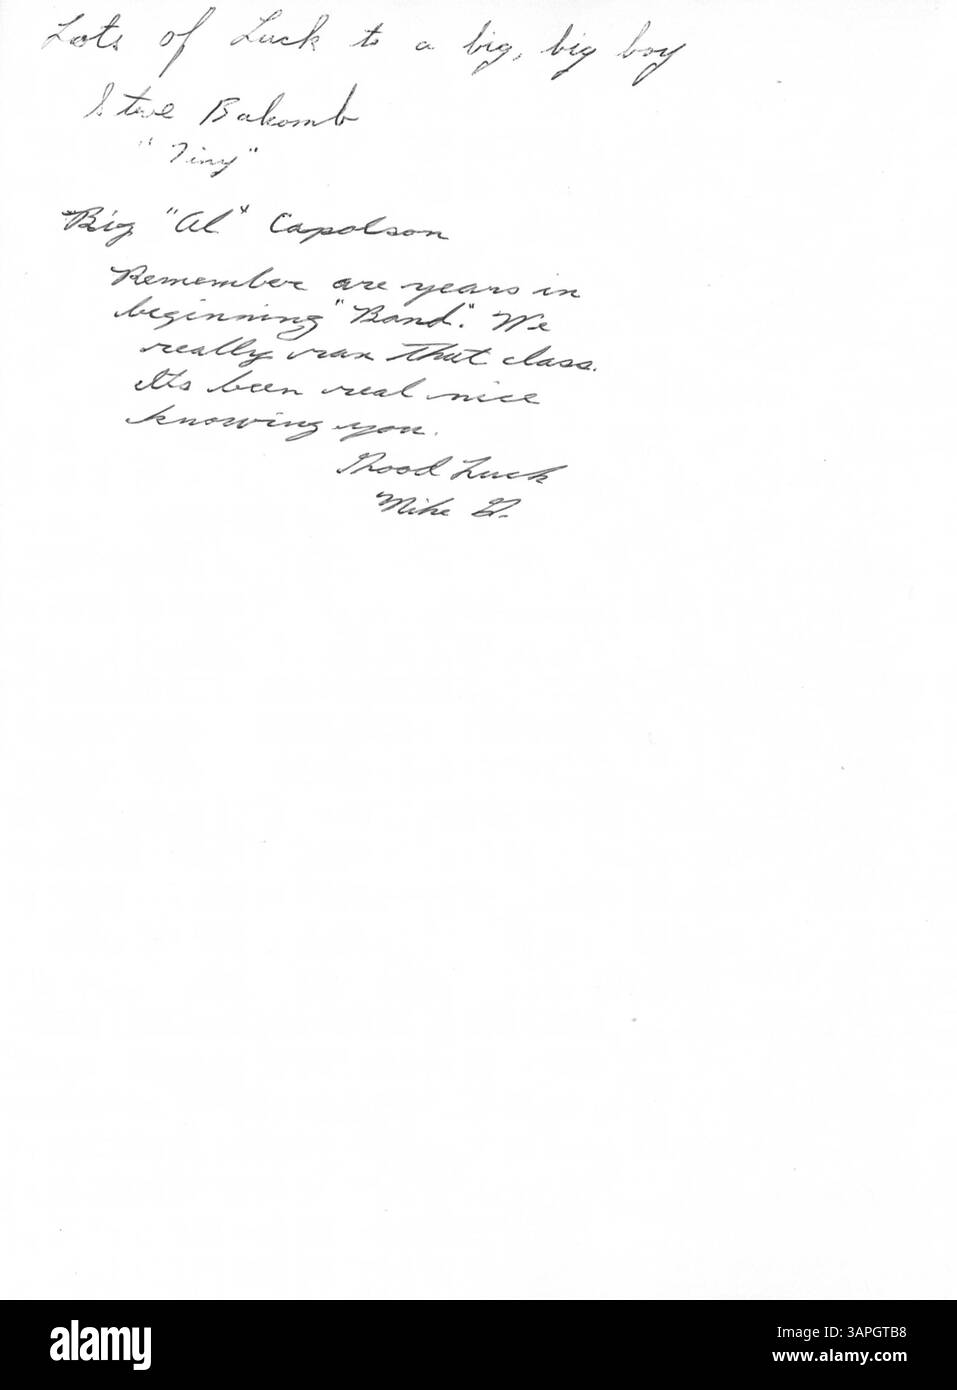 Lots of Luck to a big, big boy
Steve Bakomb
"Tiny"
Big "Al" Capolson
Remember are years in
beginning "Band". We
really ran that class.
Its been real nice
knowing you.
Good Luck
Mike G.
alamy
Image ID: 3APGTB8
www.alamy.com